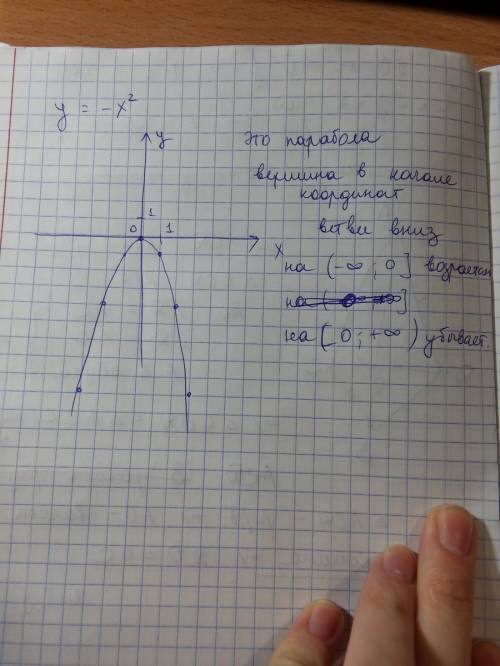 y = -x²
y
это парабола
вершина в начале
координат
1
0 1
ветви вниз
x
на (-∞ ; 0] возрастает
на [0 ; +∞) убывает.